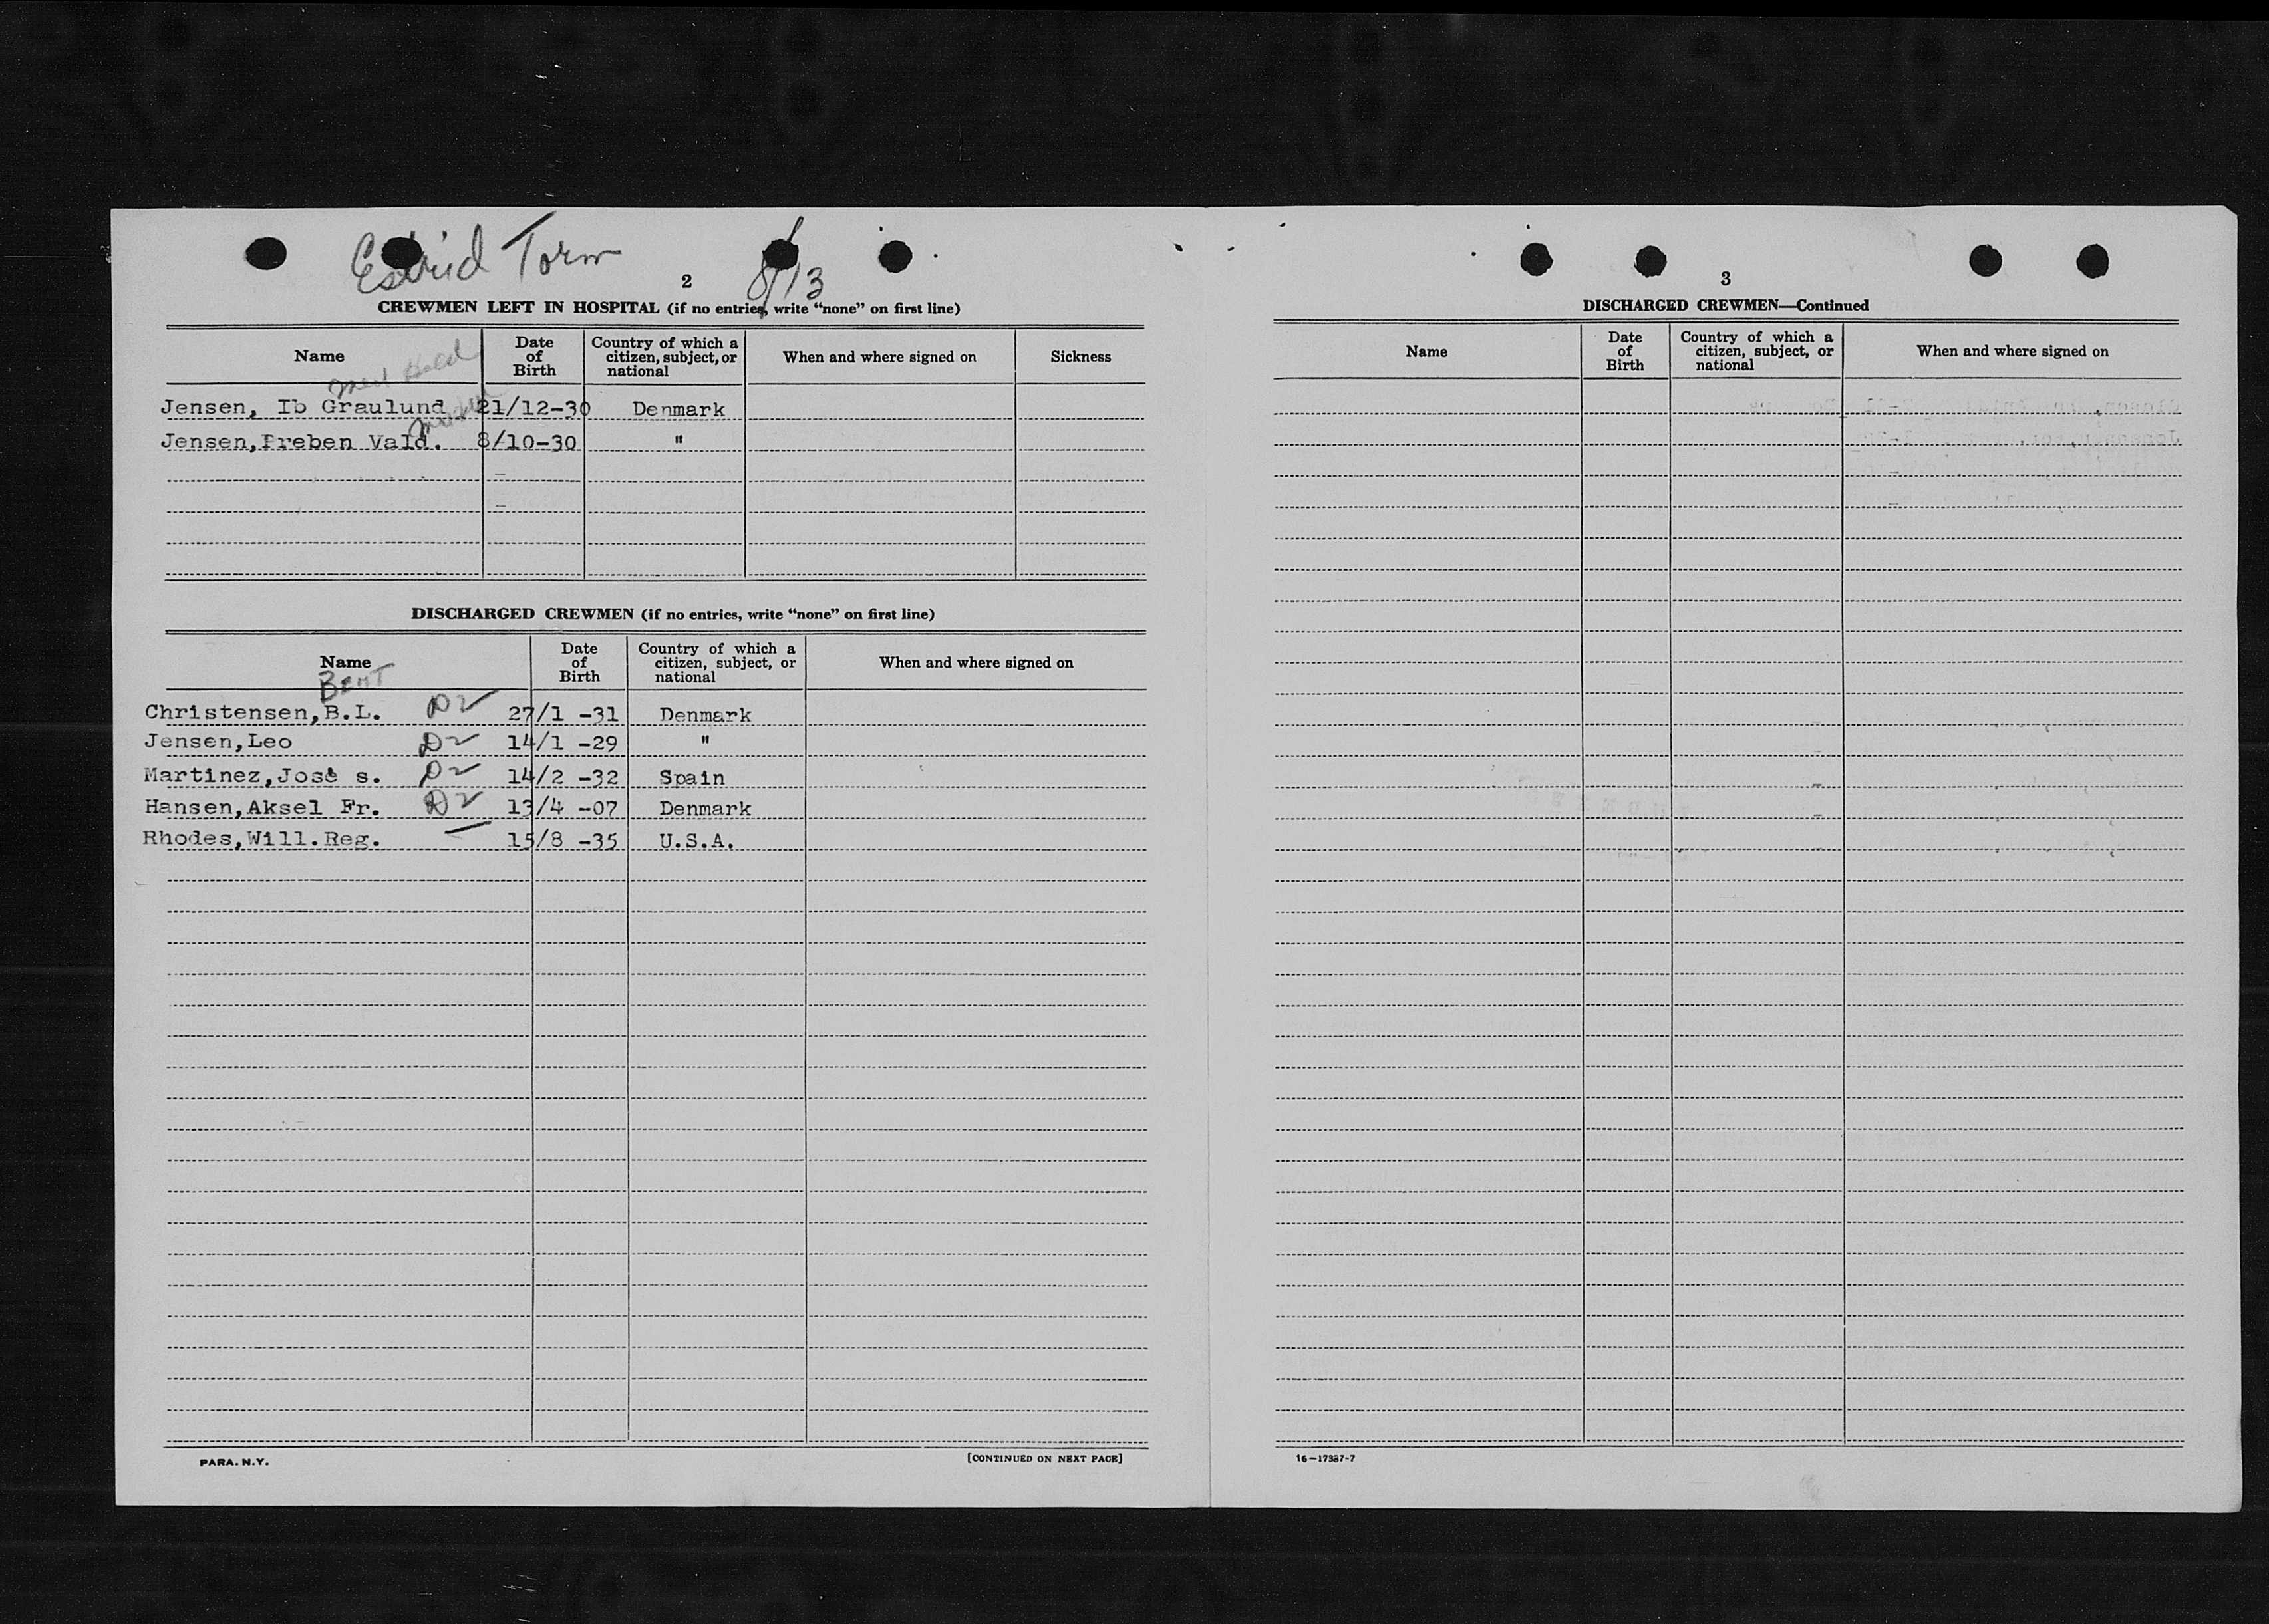 Estrid Torm
8/13
2
CREWMEN LEFT IN HOSPITAL (if no entries, write “none” on first line)
Name
Date of Birth
Country of which a citizen, subject, or national
When and where signed on
Sickness
Med Held
Jensen, Ib Graulund 21/12-30 Denmark
Jensen,Preben Vald. 8/10-30 "
DISCHARGED CREWMEN (if no entries, write “none” on first line)
Name
Date of Birth
Country of which a citizen, subject, or national
When and where signed on
Bent
Christensen,B.L. D2 27/1 -31 Denmark
Jensen,Leo D2 14/1 -29 "
Martinez,José s. D2 14/2 -32 Spain
Hansen,Aksel Fr. D2 13/4 -07 Denmark
Rhodes,Will.Reg. 15/8 -35 U.S.A.
PARA. N.Y.
[CONTINUED ON NEXT PAGE]
3
DISCHARGED CREWMEN—Continued
Name
Date of Birth
Country of which a citizen, subject, or national
When and where signed on
16—17387-7